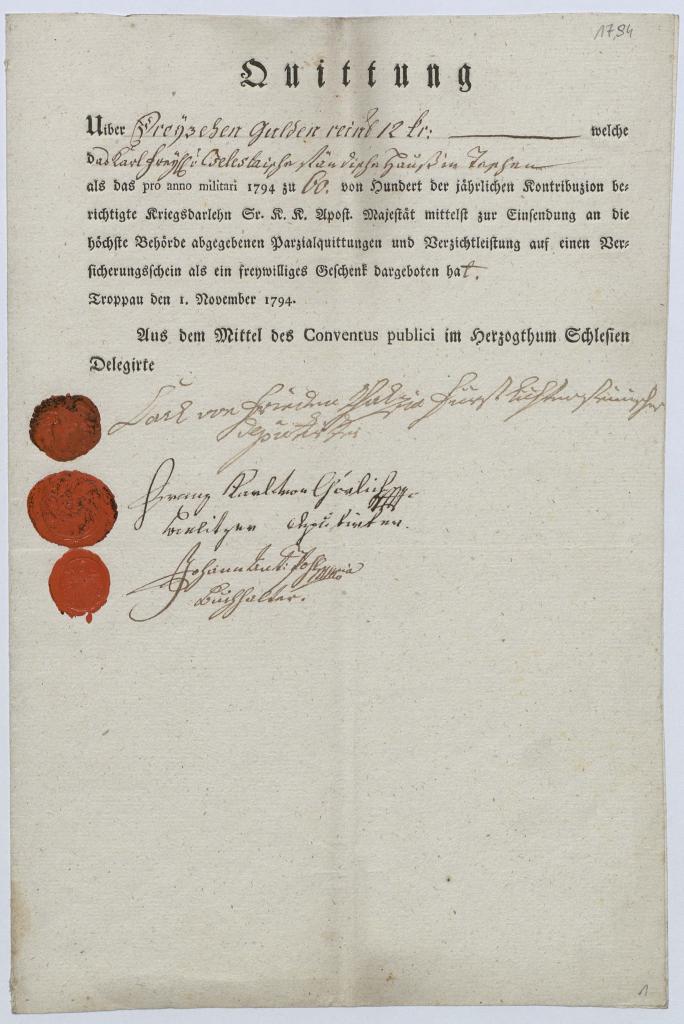 1794
Quittung
Uiber Dreyzehen Gulden reinl 12 kr: welche
das Karl Freyh v Celestaische ständische Hauß in Teschen
als das pro anno militari 1794 zu 60. von Hundert der jährlichen Kontribuzion be-
richtigte Kriegsdarlehn Sr. K. K. Apost. Majestät mittelst zur Einsendung an die
höchste Behörde abgegebenen Parzialquittungen und Verzichtleistung auf einen Ver-
sicherungsschein als ein freywilliges Geschenk dargeboten hat.
Troppau den 1. November 1794.
Aus dem Mittel des Conventus publici im Herzogthum Schlesien
Delegirte
Carl von Frieden Fürst Lichtensteinischer
Deputirter
Franz Karl von Görlich
Bielitzer Deputirter.
Johann Ant:
Buchhalter.
1